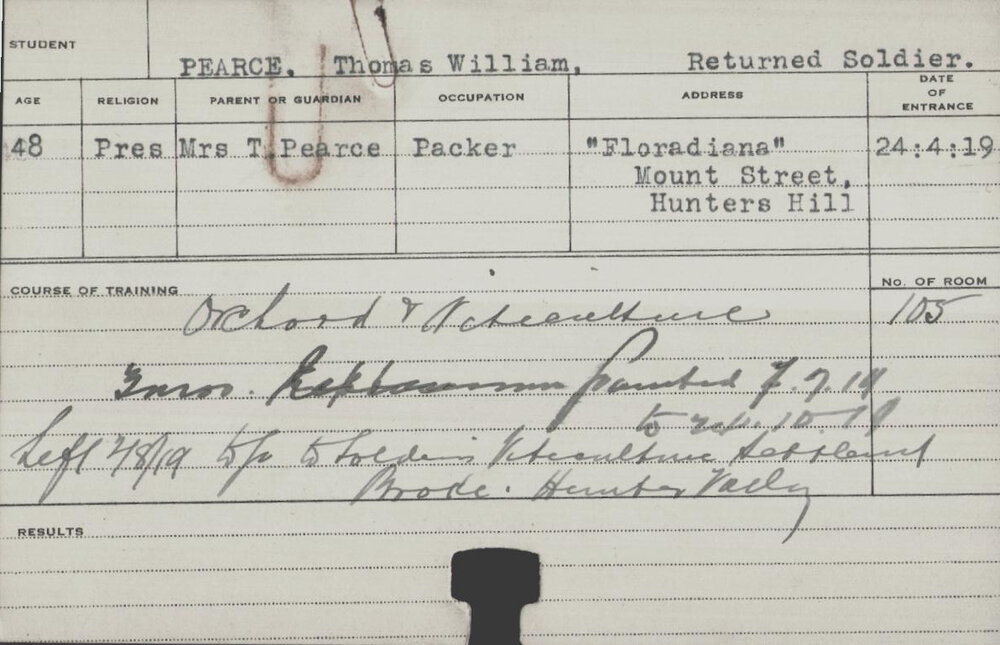 STUDENT
PEARCE. Thomas William, Returned Soldier.
AGE RELIGION PARENT OR GUARDIAN OCCUPATION ADDRESS DATE OF ENTRANCE
48 Pres Mrs T. Pearce Packer "Floradiana" 24:4:19
Mount Street,
Hunters Hill
COURSE OF TRAINING No. OF ROOM
Orchard & Viticulture 105
3 mos. Extension Granted 7.7.19
to 24.10.19
Left 2/8/19 to go to Soldiers Viticulture Settlement
Broke. Hunter Valley
RESULTS